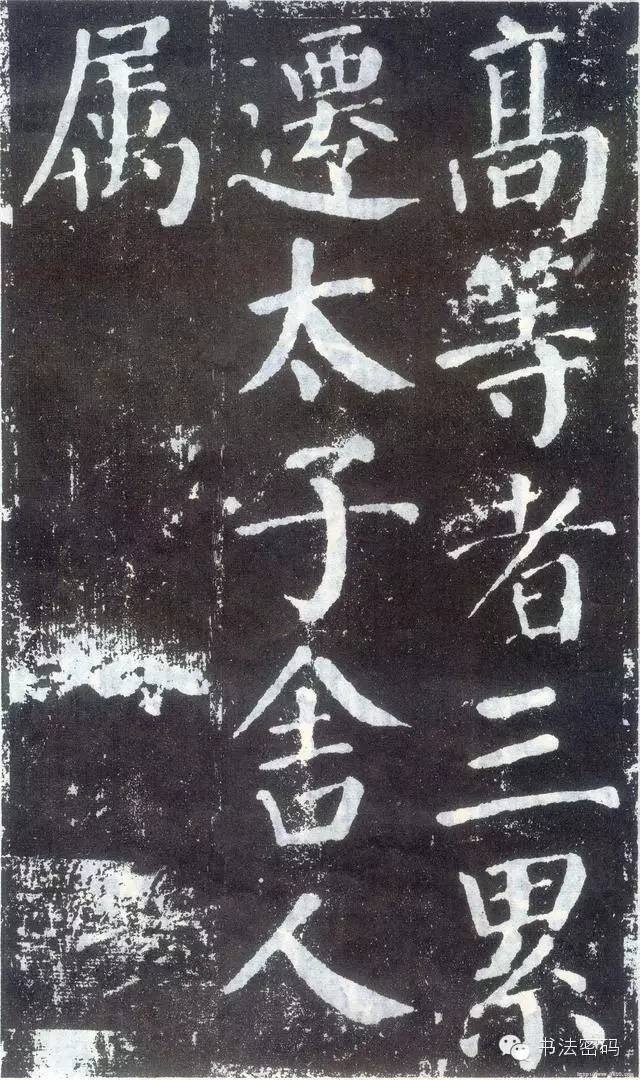 高等者三累
遷太子舍人
属
书法密码